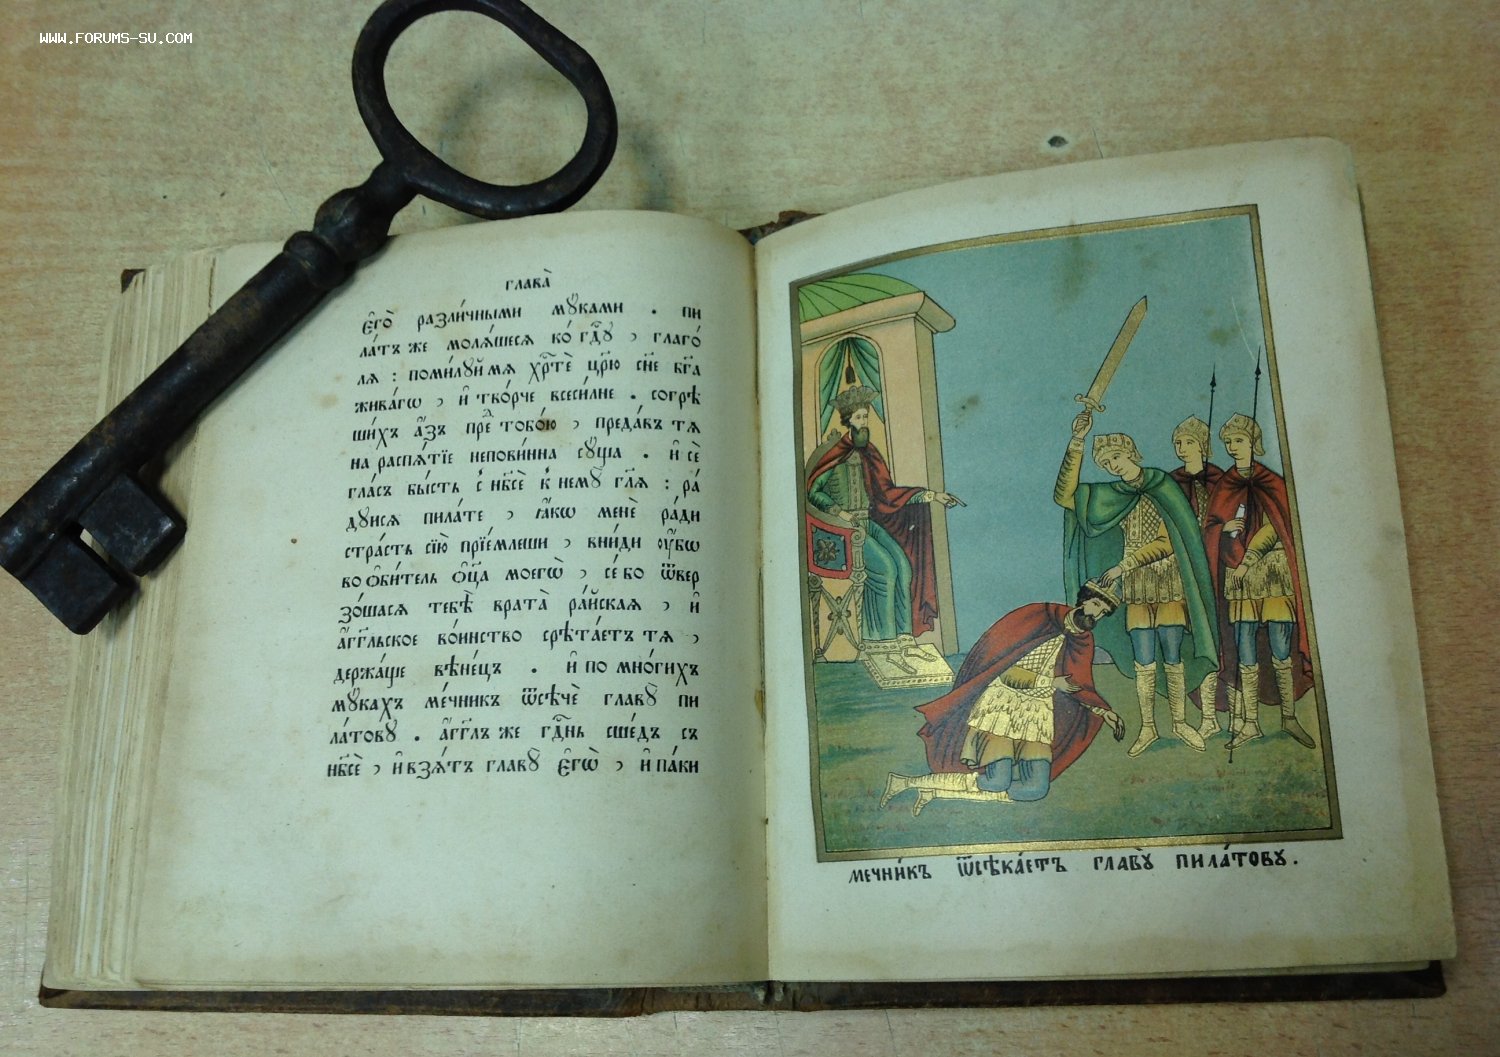 WWW.FORUMS-SU.COM
глава̀
є҆го̀ разли́чными мꙋ́ками . пи
ла́тъ же молѧ́шесѧ ко́ гд҇ꙋ , глаго́
лѧ : поми́лꙋй мѧ хрт҇ѐ цр҃ю сн҃е бг҃а
жива́гѡ , и҆ тво́рче всеси́лне . согрѣ
ши́хъ а҆́зъ преⷣ тобо́ю , преда́въ тѧ
на распѧ́тїе непови́нна сꙋ́ща . и҆ сѐ
гла́съ бы́сть с̾ нб҃сѐ к̾ немꙋ̀ гл҃ѧ : ра́
дꙋисѧ пила́те , ꙗ҆́кѡ менѐ ра́ди
стра́сть сїю̀ прїе́млеши , вни́ди ᲂу҆́бѡ
во ѻ҆би́тель ѻ҆ц҃а моегѡ̀ , се́ бо ѿвер
зо́шасѧ тебѣ̀ врата̀ ра́йскаѧ , и҆
а҆́гг҃льское во́инство срѣта́етъ тѧ ,
держа́ще вѣне́цъ . и҆ по мно́гихъ
мꙋ́кахъ ме́чник ѿсѣчѐ главꙋ̀ пи
ла́товꙋ . а҆́гг҃лъ же гд҇нь сше́дъ съ
нб҃сѐ , и҆ взѧ́тъ главꙋ̀ є҆гѡ̀ , и҆ па́ки
мечни́къ ѿсѣка́етъ главꙋ̀ пила́товꙋ .